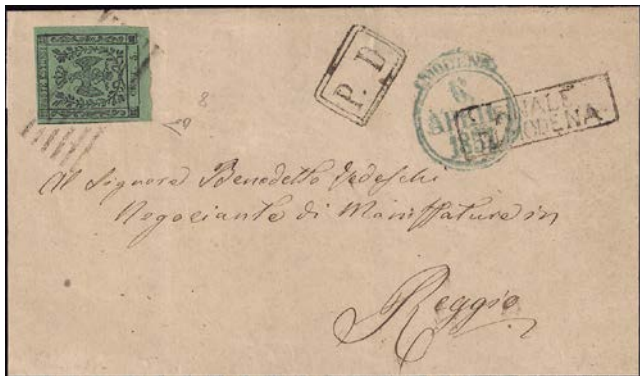 P.D
MODENA
6
APRILE
MODENA
8
Al Signore Benedetto Tedeschi
Negoziante di Maniffature in
Reggio